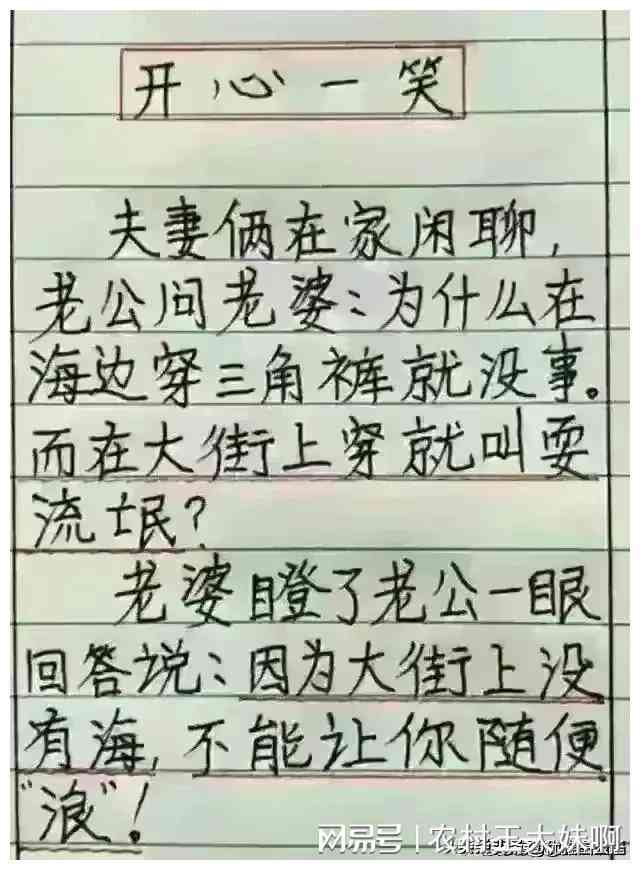 开心一笑
夫妻俩在家闲聊,
老公问老婆:为什么在
海边穿三角裤就没事。
而在大街上穿就叫耍
流氓?
老婆瞪了老公一眼
回答说:因为大街上没
有海,不能让你随便
“浪”!
网易号 | 农村王大妹啊